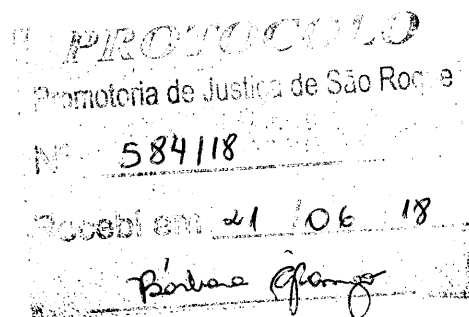 PROTOCOLO
Promotoria de Justiça de São Roque
Nº 584/18
Recebi em 21/06/18
Bárbara